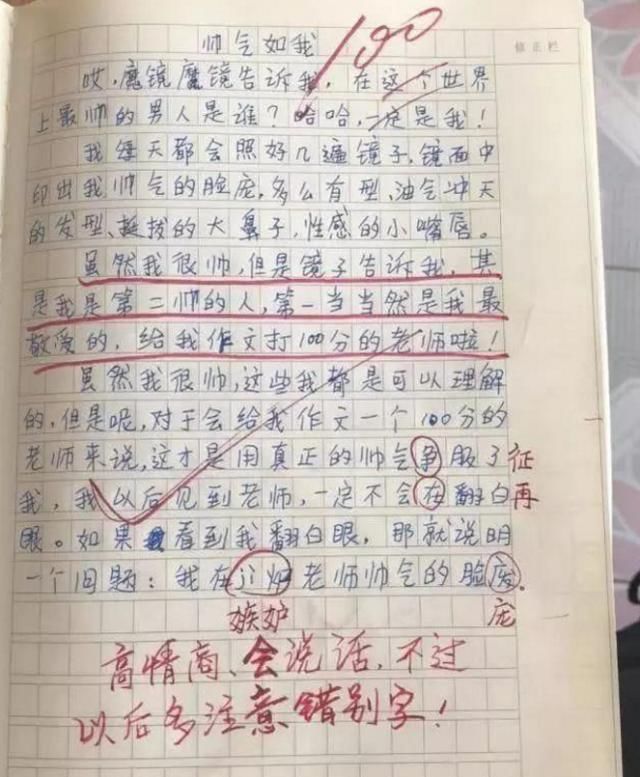 帅气如我
100
修正栏
哎,魔镜魔镜告诉我,在这个世界
上最帅的男人是谁?哈哈,一定是我!
我每天都会照好几遍镜子,镜面中
印出我帅气的脸庞,多么有型,油气冲天
的发型、挺拔的大鼻子,性感的小嘴唇。
虽然我很帅,但是镜子告诉我,其
是我是第二帅的人,第一当当然是我最
敬爱的,给我作文打100分的老师啦!
虽然我很帅,这些我都是可以理解
的,但是呢,对于会给我作文一个100分的
老师来说,这才是用真正的帅气争服了 征
我,我以后见到老师,一定不会在翻白 再
眼。如果我看到我翻白眼,那就说明
一个问题:我在 老师帅气的脸
嫉妒 庞
高情商、会说话,不过
以后多注意错别字!